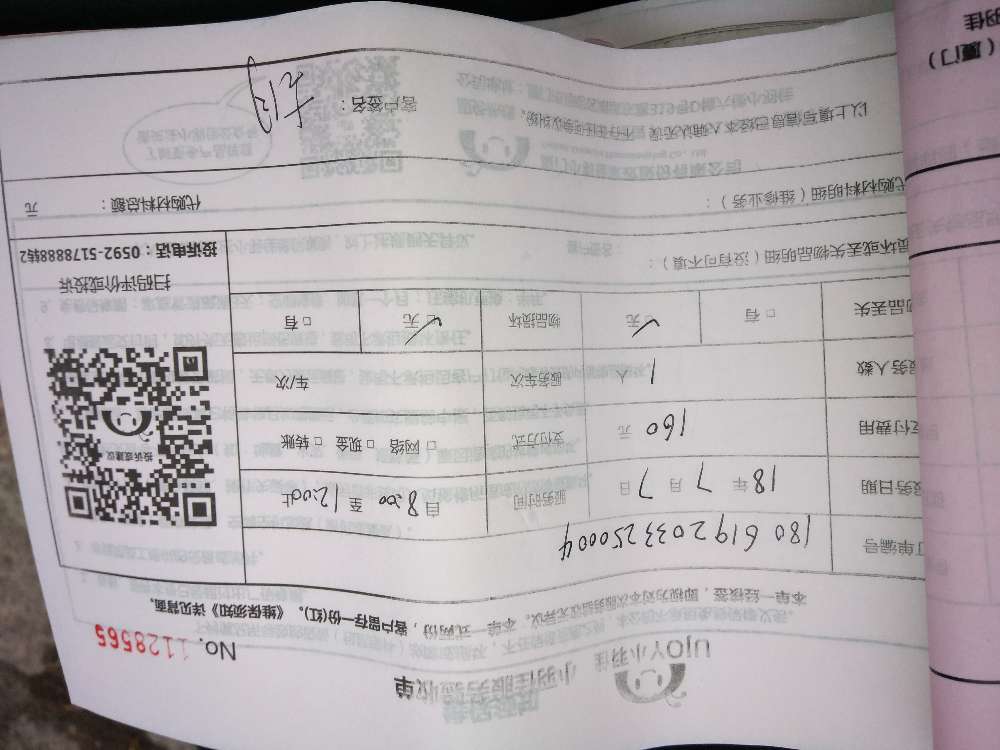 UJOY小羽佳
小羽佳服务验收单
No. 1128565
本单一经接签,即视为对本次服务品质无异议。本单一式两份,客户留存一份(红)。《维保须知》详见背面。
订单编号 1806192033250004
服务日期 18 年 7 月 7 日 服务时间 自 8:00 至 12:00 止
支付费用 160 元 支付方式 □ 网络 □ 现金 □ 转账
服务人数 1 人 服务车次 车/次
物品丢失 □ 有 ☑ 无 物品损坏 ☑ 无 □ 有
投诉或建议
扫码评价或投诉
投诉电话:0592-5178888转2
损坏或丢失物品明细(没有可不填):
代购材料明细(维修业务): 代购材料总额: 元
以上填写信息已经本人确认无误,不存在任何争议纠纷。 客户签名:
(厦门)
羽佳